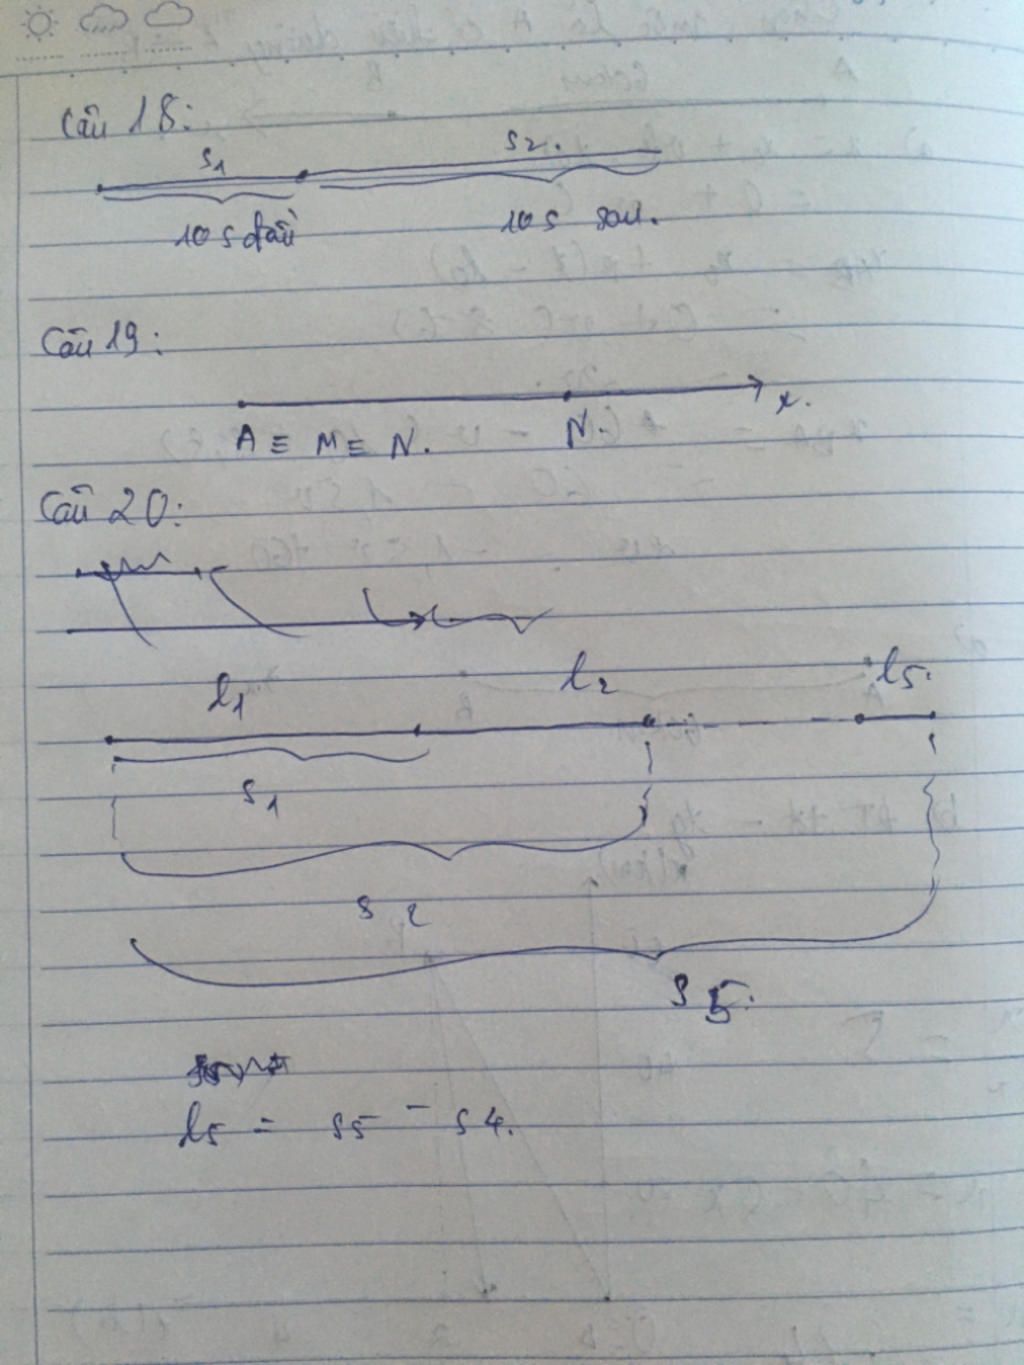 Câu 18:
s1 s2.
10s đầu 10s sau.
Câu 19:
x.
A ≡ M ≡ N. N.
Câu 20:
l1 l2 l5.
s1
s2
s5.
l5 = s5 - s4.